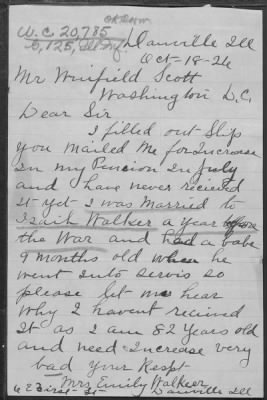 W.C. 20,785
G, 125, Ill Inf Danville Ill
Oct-19-26
Mr Winfield Scott
Washington D.C.
Dear Sir
I filled out Slip
you Mailed Me for Increase
In my Pencion In July
and have never recieved
It yet - I was Married to
Isaih Walker a year before
the War and had a babe
9 months old when he
went Into Servis so
please let me hear
Why I havent recived
It as I am 82 years old
and need Increase very
bad your Respt
Mrs Emily Walker
Danville Ill